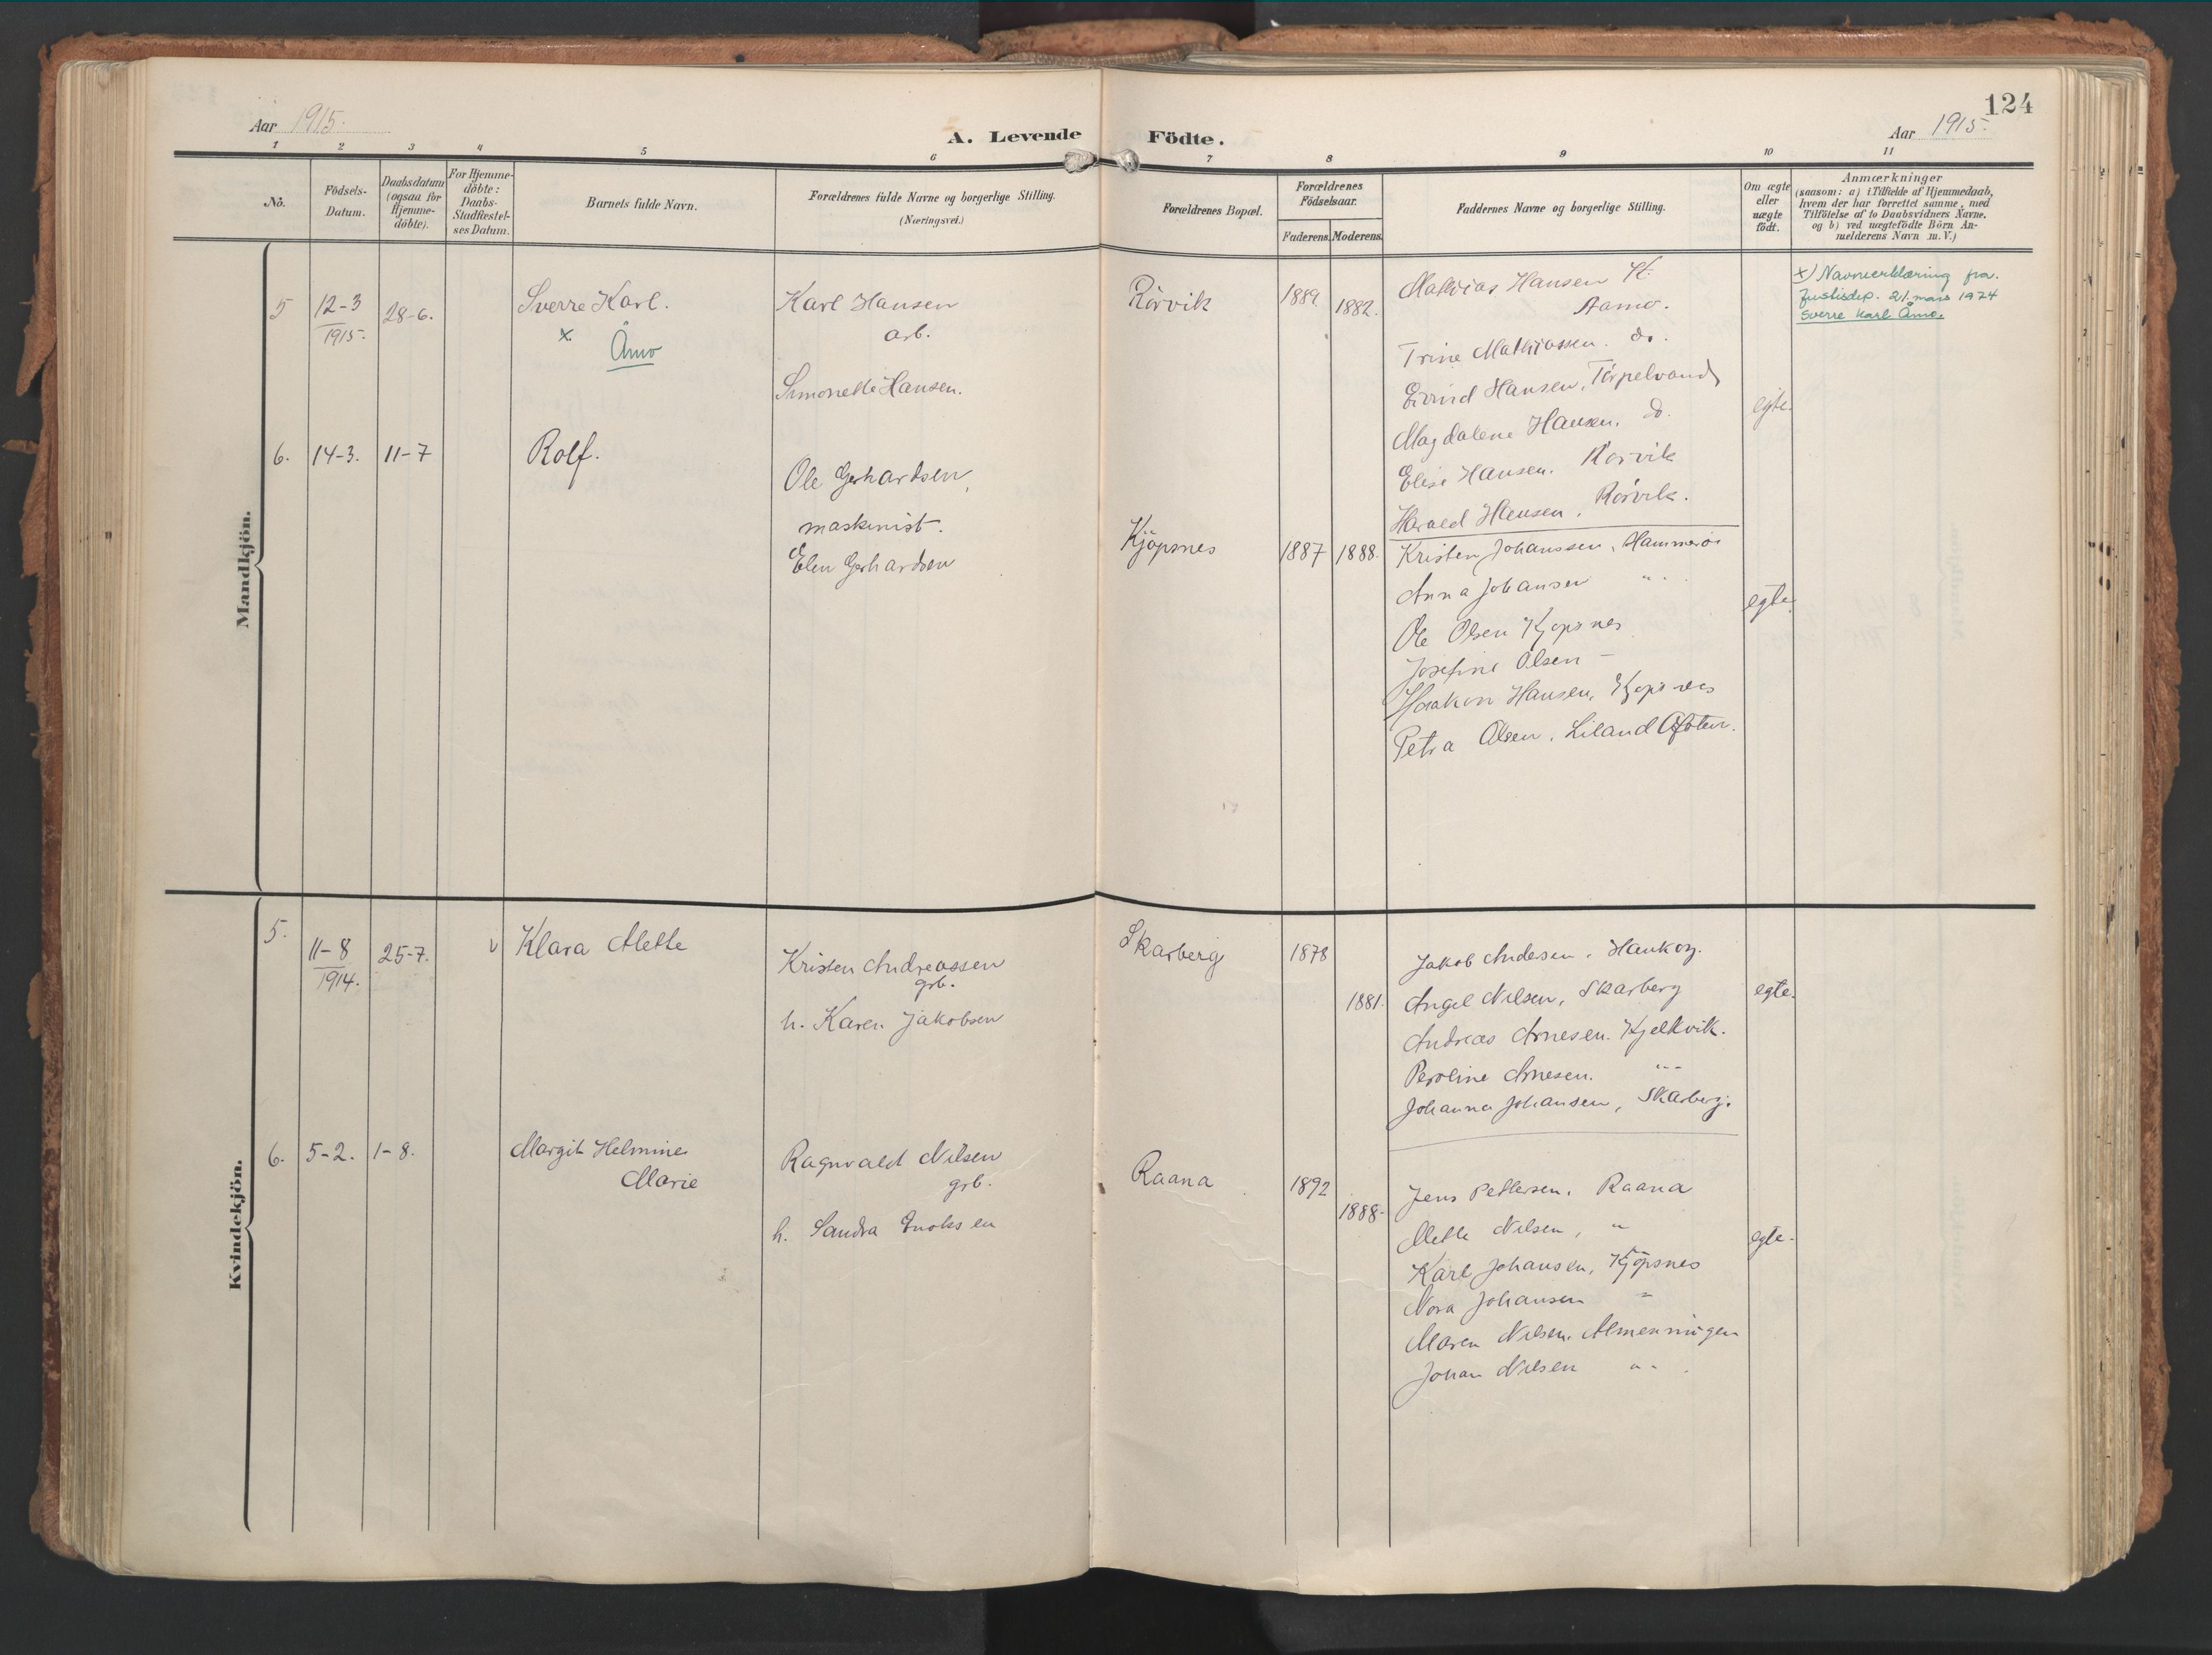 124
Aar 1915.
A. Levende Födte.
Aar 1915.
1 2 3 4 5 6 7 8 9 10 11
No.
Födsels-
Datum.
Daabsdatum
(ogsaa for
Hjemme-
döbte).
For Hjemme-
döbte:
Daabs-
Stadfæstel-
ses Datum.
Barnets fulde Navn.
Forældrenes fulde Navne og borgerlige Stilling.
(Næringsvei.)
Forældrenes Bopæl.
Forældrenes
Födselsaar.
Faderens. Moderens.
Faddernes Navne og borgerlige Stilling.
Om ægte
eller
uægte
födt.
Anmærkninger
(saasom: a) i Tilfælde af Hjemmedaab,
hvem der har forrettet samme, med
Tilföielse af to Daabsvidners Navne,
og b) ved uægtefödte Börn An-
melderens Navn m.V.)
Mandkjön.
5 12-3
1915. 28-6.
Sverre Karl.
x Åmo
Karl Hansen
arb.
Simonette Hansen.
Rörvik
1889 1882.
Mathias Hansen
Aamo.
Trine Mathiassen. do.
Eivind Hansen, Törpelvand
Magdalene Hansen, do.
Elise Hansen. Rörvik
Harald Hansen, Rörvik.
egte.
x) Navneerklæring fra
Justisdep. 21. mars 1924
Sverre Karl Åmo.
6. 14-3. 11-7
Rolf.
Ole Gerhardsen,
maskinist.
Elen Gerhardsen
Kjöpsnes
1887 1888.
Kristen Johanssen, Hammerö
Anna Johansen " "
Ole Olsen Kjöpsnes
Josefine Olsen -
Haakon Hansen, Kjopsnes
Petra Olsen, Liland Ofoten.
egte.
Kvindekjön.
5. 11-8
1914. 25-7.
v Klara Mette
Kristen Andreassen
grb.
h. Karen Jakobsen
Skarberg
1878 1881.
Jakob Andersen, Haukøy.
Angel Nilsen, Skarberg
Andreas Arnesen. Kjelkvik.
Peroline Arnesen. " "
Johanna Johansen, Skarberg.
egte.
6. 5-2. 1-8.
Margit Helmine
Marie
Ragnvald Nilsen
grb.
h. Sandra Enoksen
Raana
1892 1888-
Jens Pettersen, Raana
Mette Nilsen, "
Karl Johansen, Kjöpsnes
Nora Johansen "
Maren Nilsen. Almenningen
Johan Nilsen " "
egte.